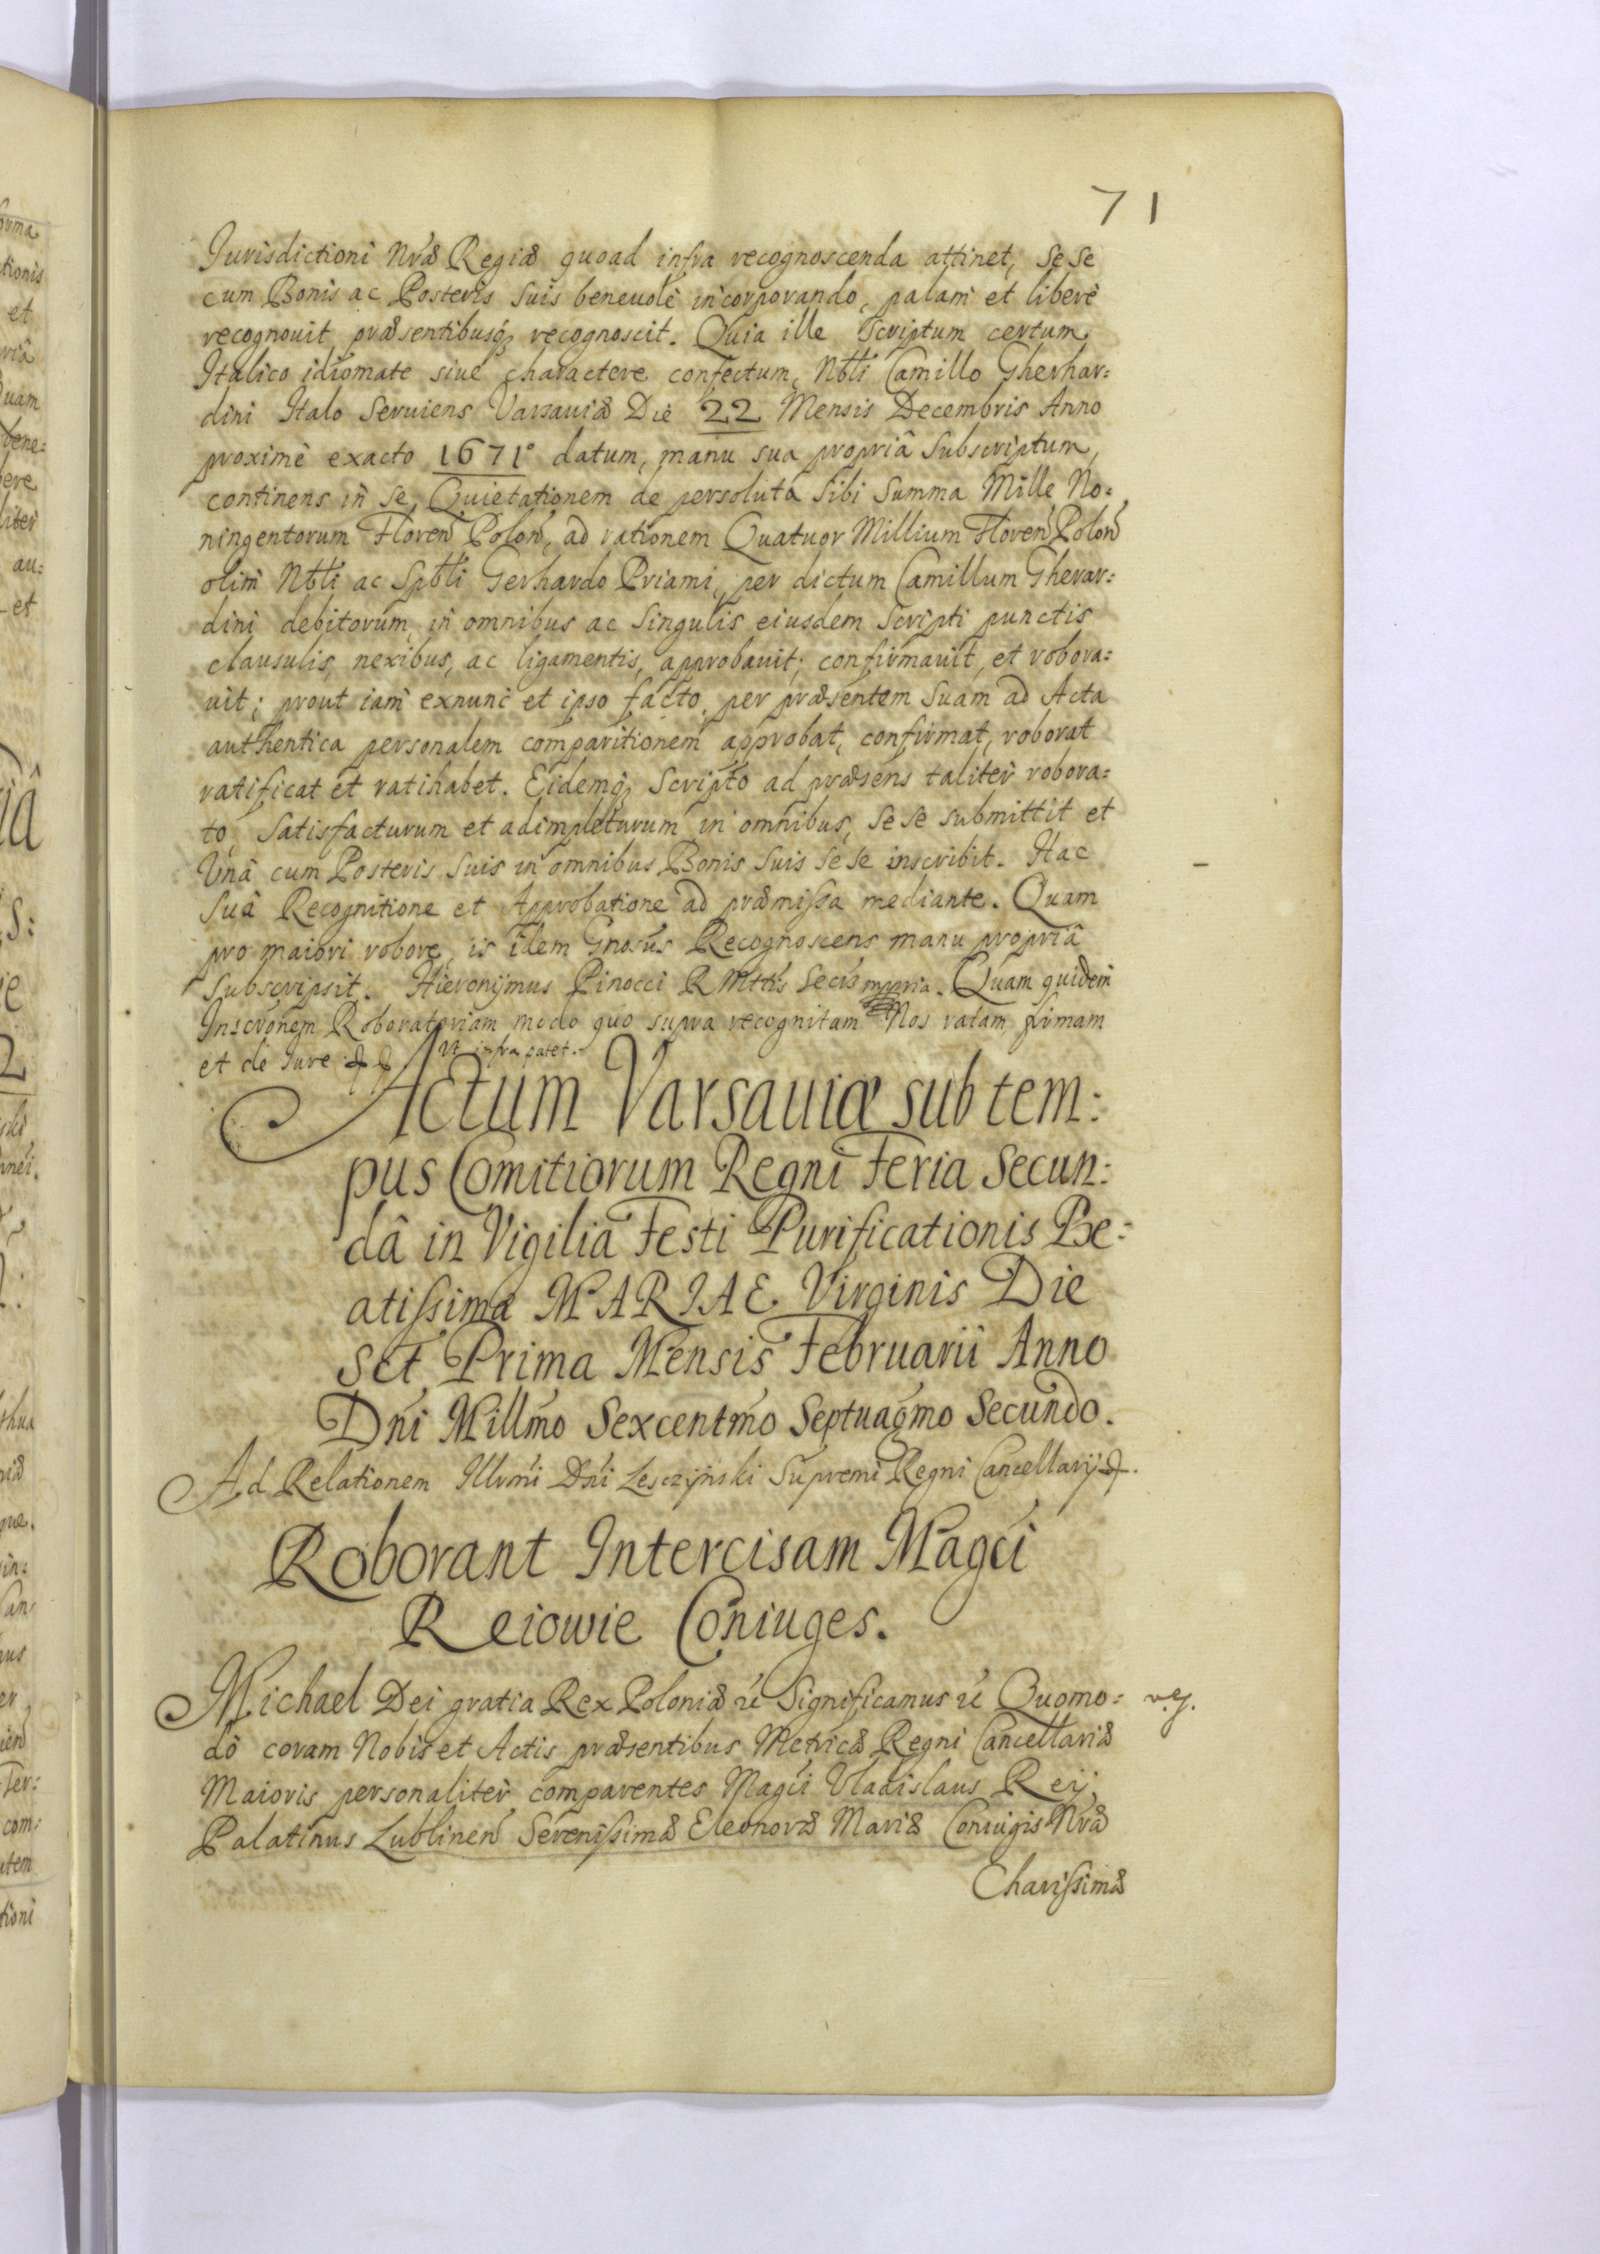 71
Iurisdictioni Nræ Regiæ quoad infra recognoscenda attinet, se se
cum Bonis ac Posteris suis beneuolè incorporando, palam et liberè
recognouit præsentibusq; recognoscit. Quia ille Scriptum certum
Italico idiomate siue charactere confectum, Nbli Camillo Gherhar:
dini Italo Seruiens Varsauiæ Die 22 Mensis Decembris Anno
proximè exacto 1671° datum, manu sua propriâ subscriptum,
continens in se, Quietationem de persoluta sibi summa Mille No:
ningentorum Floren Polon, ad rationem Quatuor Millium Floren Polon
olim Nbli ac Spbli Gerhardo Priami, per dictum Camillum Gherar:
dini debitorum, in omnibus ac singulis eiusdem Scripti punctis
clausulis, nexibus, ac ligamentis, approbauit, confirmauit, et robora:
uit; prout iam exnunc et ipso facto, per præsentem suam ad Acta
authentica personalem comparitionem approbat, confirmat, roborat
ratificat et ratihabet. Eidemq; Scripto ad præsens taliter robora:
to, satisfacturum et adimpleturum in omnibus, se se submittit et
Vnâ cum Posteris suis in omnibus Bonis suis se se inscribit. Hac
suâ Recognitione et Approbatione ad præmissa mediante. Quam
pro maiori robore, is idem Gnosus Recognoscens manu propriâ
subscripsit. Hieronymus Pinocci R Mttis Secris mppria. Quam quidem
Inscronem Roboratoriam modo quo supra recognitam Nos ratam, firmam
et de Iure
Vt infra patet.
Actum Varsauiæ sub tem:
pus Comitiorum Regni Feria Secun:
dâ in Vigilia Festi Purificationis Be:
atissimæ MARIAE Virginis Die
sct Prima Mensis Februarii Anno
Dni Millmo Sexcentmo Septuagmo Secundo.
Ad Relationem Illrmi Dni Lesczynski Supremi Regni Cancellarij
Roborant Intercisam Magci
Reiowie Coniuges.
Michael Dei gratia Rex Poloniæ &c Significamus &c Quomo:
dò coram Nobis et Actis præsentibus Metricæ Regni Cancellariæ
Maioris personaliter comparentes Magci Vladislaus Reij,
Palatinus Lublinen Serenissimæ Eleonoræ Mariæ Coniugis Nræ
Charissimæ